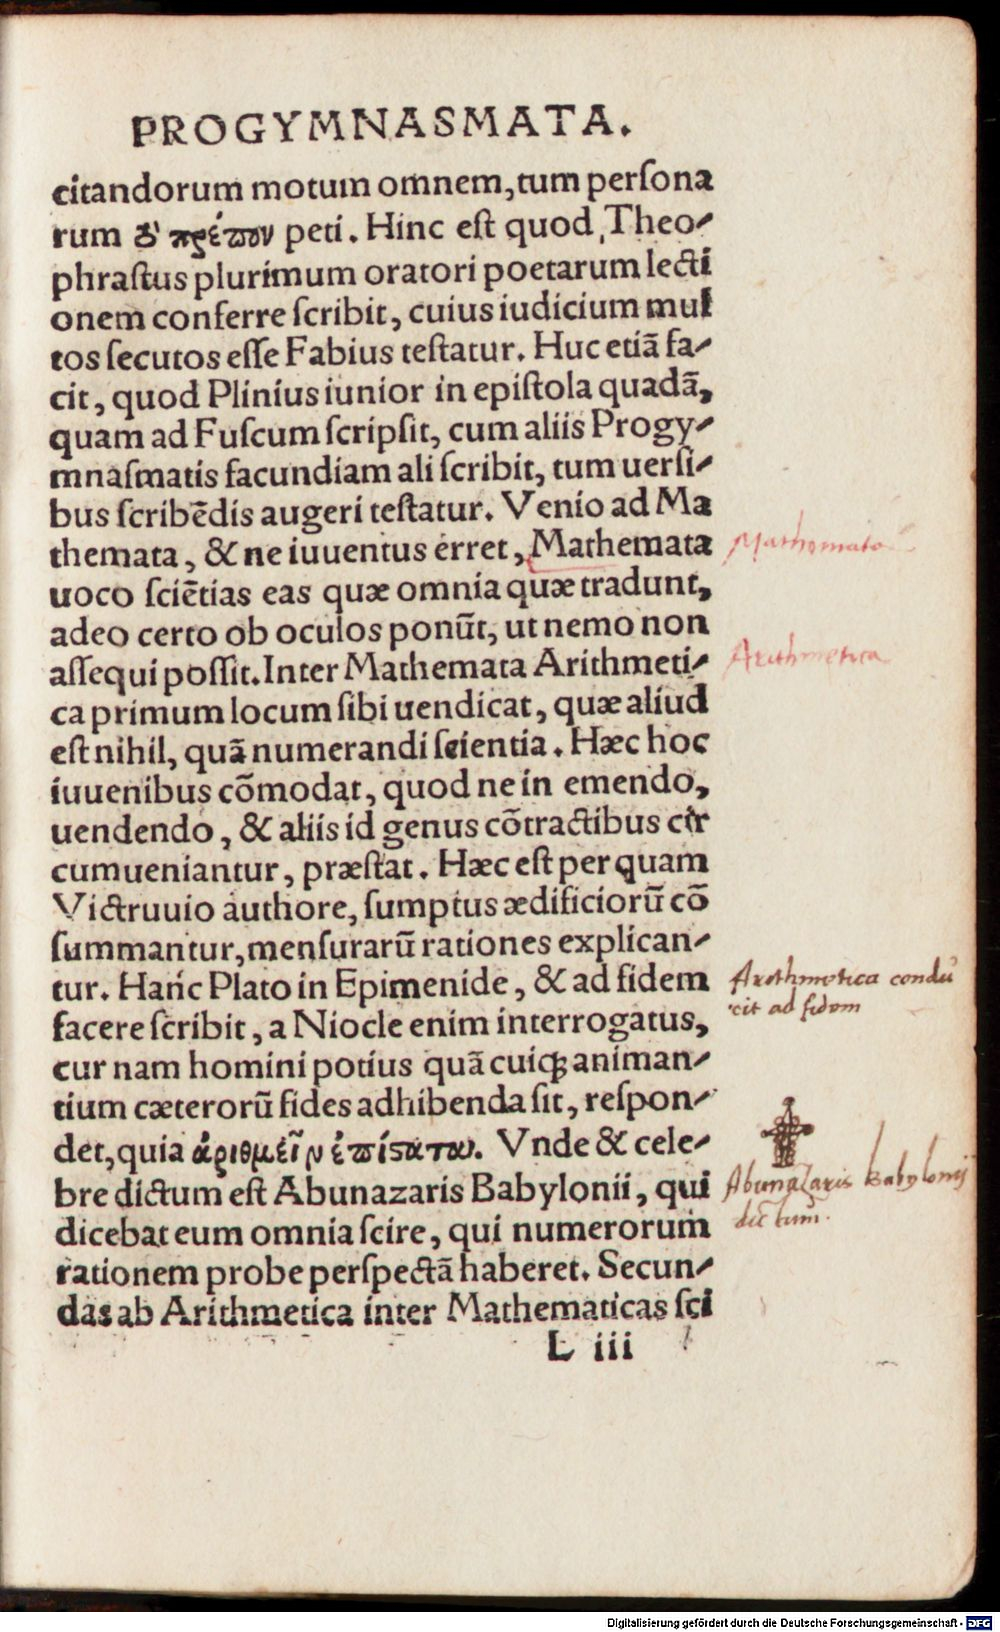 PROGYMNASMATA.
citandorum motum omnem, tum perſona
rum τὸ πρέπον peti. Hinc eſt quod Theo-
phraſtus plurimum oratori poetarum lecti
onem conferre ſcribit, cuius iudicium mul
tos ſecutos eſſe Fabius teſtatur. Huc etiā fa-
cit, quod Plinius iunior in epiſtola quadā,
quam ad Fuſcum ſcripſit, cum aliis Progy-
mnaſmatis facundiam ali ſcribit, tum uerſi-
bus ſcribēdis augeri teſtatur. Venio ad Ma
themata, & ne iuuentus erret, Mathemata
Mathemata
uoco ſciētias eas quæ omnia quæ tradunt,
adeo certo ob oculos ponūt, ut nemo non
aſſequi poſſit. Inter Mathemata Arithmeti-
Arithmetica
ca primum locum ſibi uendicat, quæ aliud
eſt nihil, quā numerandi ſcientia. Hæc hoc
iuuenibus cōmodat, quod ne in emendo,
uendendo, & aliis id genus cōtractibus cir
cumueniantur, præſtat. Hæc eſt per quam
Victruuio authore, ſumptus ædificiorū cō
ſummantur, menſurarū rationes explican-
tur. Hanc Plato in Epimenide, & ad fidem
Arethmetica condu
facere ſcribit, a Niocle enim interrogatus,
cit ad fidem
cur nam homini potius quā cuiqꝫ animan-
tium cæterorū fides adhibenda ſit, reſpon-
det, quia ἀριθμεῖν ἐπίσαται. Vnde & cele-
bre dictum eſt Abunazaris Babylonii, qui
Abunazaris babylonij
dicebat eum omnia ſcire, qui numerorum
dictum.
rationem probe perſpectā haberet. Secun-
das ab Arithmetica inter Mathematicas ſci
L iii
Digitalisierung gefördert durch die Deutsche Forschungsgemeinschaft - DFG